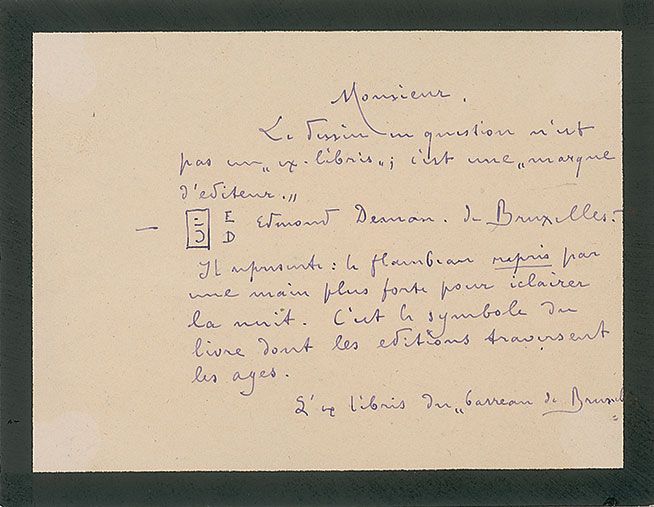 Monsieur.
Le dessin en question n'est
pas un „ex-libris„; c'est une „marque
d'editeur.„
— E Edmond Deman. de Bruxelles.-
D
Il represente: le flambeau repris par
une main plus forte pour eclairer
la nuit. C'est le symbole du
livre dont les editions traversent
les ages.
L'ex libris du „barreau de Bruxel